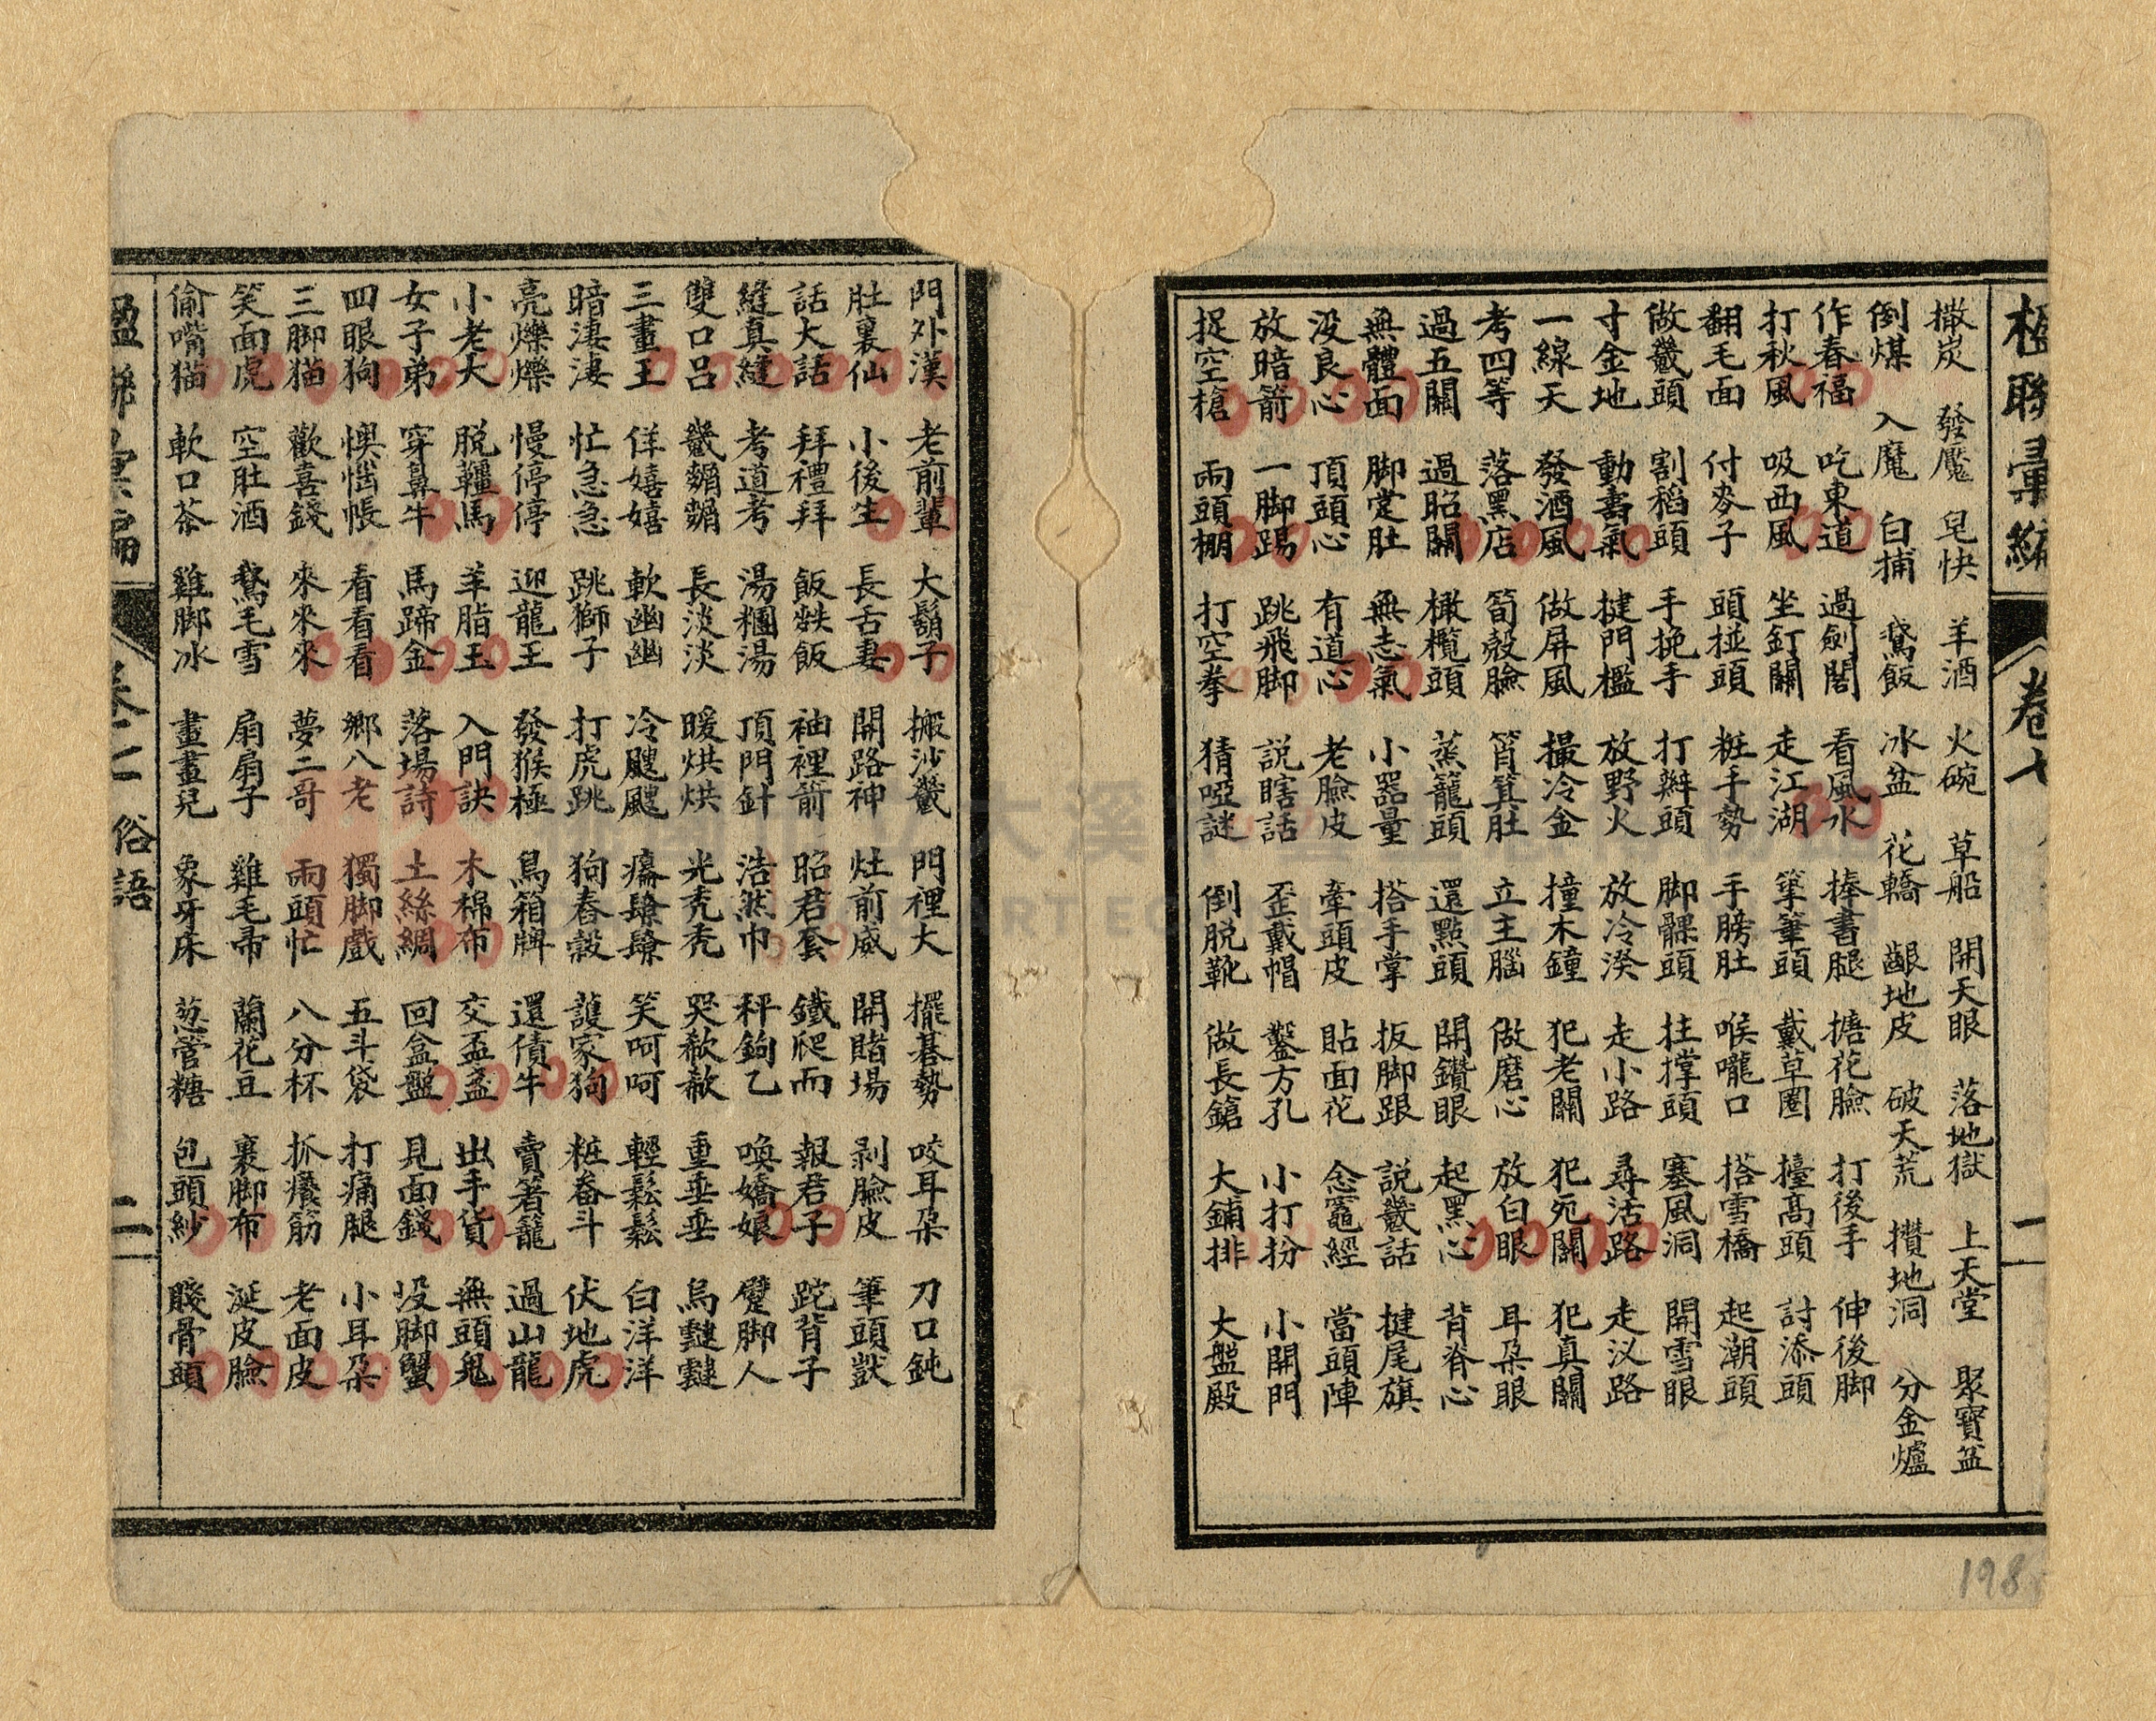 楹聯彙編 卷七 一
撒炭 發魘 皂快 羊酒 火碗 草船 開天眼 落地獄 上天堂 聚寶盆
倒煤 入魔 白捕 鵞飯 冰盆 花轎 齦地皮 破天荒 攢地洞 分金爐
作春福 吃東道 過劍閣 看風水 捧書腿 搪花臉 打後手 伸後脚
打秋風 吸西風 坐釘關 走江湖 筆頭 戴草圈 擡高頭 討添頭
翻毛面 付麥子 頭掽頭 粧手勢 手膀肚 喉嚨口 搭雪橋 起潮頭
做畿頭 割稻頭 手挽手 打辮頭 脚髁頭 拄撑頭 塞風洞 開雪眼
寸金地 動書氣 揵門檻 放野火 放冷湀 走小路 尋活路 走汊路
一線天 發酒風 做屏風 撮冷金 撞木鐘 犯老關 犯宛關 犯真關
考四等 落黑店 筍殼臉 筲箕肚 立主腦 做磨心 放白眼 耳朶眼
過五關 過昭關 橄欖頭 蒸籠頭 還點頭 開鑽眼 起黑心 背脊心
無體面 脚肚 無志氣 小器量 搭手掌 扳脚跟 説畿話 揵尾旗
没良心 頂頭心 有道心 老臉皮 牽頭皮 貼面花 念竈經 當頭陣
放暗箭 一脚踢 跳飛脚 説瞎話 歪戴帽 鑿方孔 小打扮 小開門
捉空槍 兩頭棚 打空拳 猜啞謎 倒脱靴 做長鎗 大鋪排 大盤殿
門外漢 老前輩 大鬍子 搬沙畿 門裡大 擺碁勢 咬耳朶 刀口鈍
肚裏仙 小後生 長舌妻 開路神 灶前威 開賭場 剥臉皮 筆頭獃
話大話 拜禮拜 飯飯 袖裡箭 昭君套 鐵爬而 報君子 跎背子
縫真縫 考道考 湯糰湯 頂門針 浩然巾 秤鉤乙 喚嬌娘 躄脚人
雙口呂 畿 長淡淡 暖烘烘 光禿禿 哭赦赦 重垂垂 烏
三畫王 佯嬉嬉 軟幽幽 冷颼颼 笑呵呵 輕鬆鬆 白洋洋
暗淒淒 忙急急 跳獅子 打虎跳 狗舂穀 護家狗 粧畚斗 伏地虎
亮爍爍 慢停停 迎龍王 發猴極 鳥箱牌 還債牛 賣箸籠 過山龍
小老大 脱韁馬 羊脂玉 入門訣 木棉布 交盃盞 出手貨 無頭鬼
女子弟 穿鼻牛 馬蹄金 落場詩 土絲綢 回盒盤 見面錢 没脚蟹
四眼狗 懊惱帳 看看看 鄉八老 獨脚戲 五斗袋 打痛腿 小耳朶
三脚猫 歡喜錢 來來來 夢二哥 兩頭忙 八分杯 抓癢筋 老面皮
笑面虎 空肚酒 鵞毛雪 扇扇子 雞毛帚 蘭花豆 裹脚布 涎皮臉
偷嘴猫 軟口茶 雞脚冰 畫畫兒 象牙床 葱管糖 包頭紗 賤骨頭
楹聯彙編 卷七 俗語 二
198